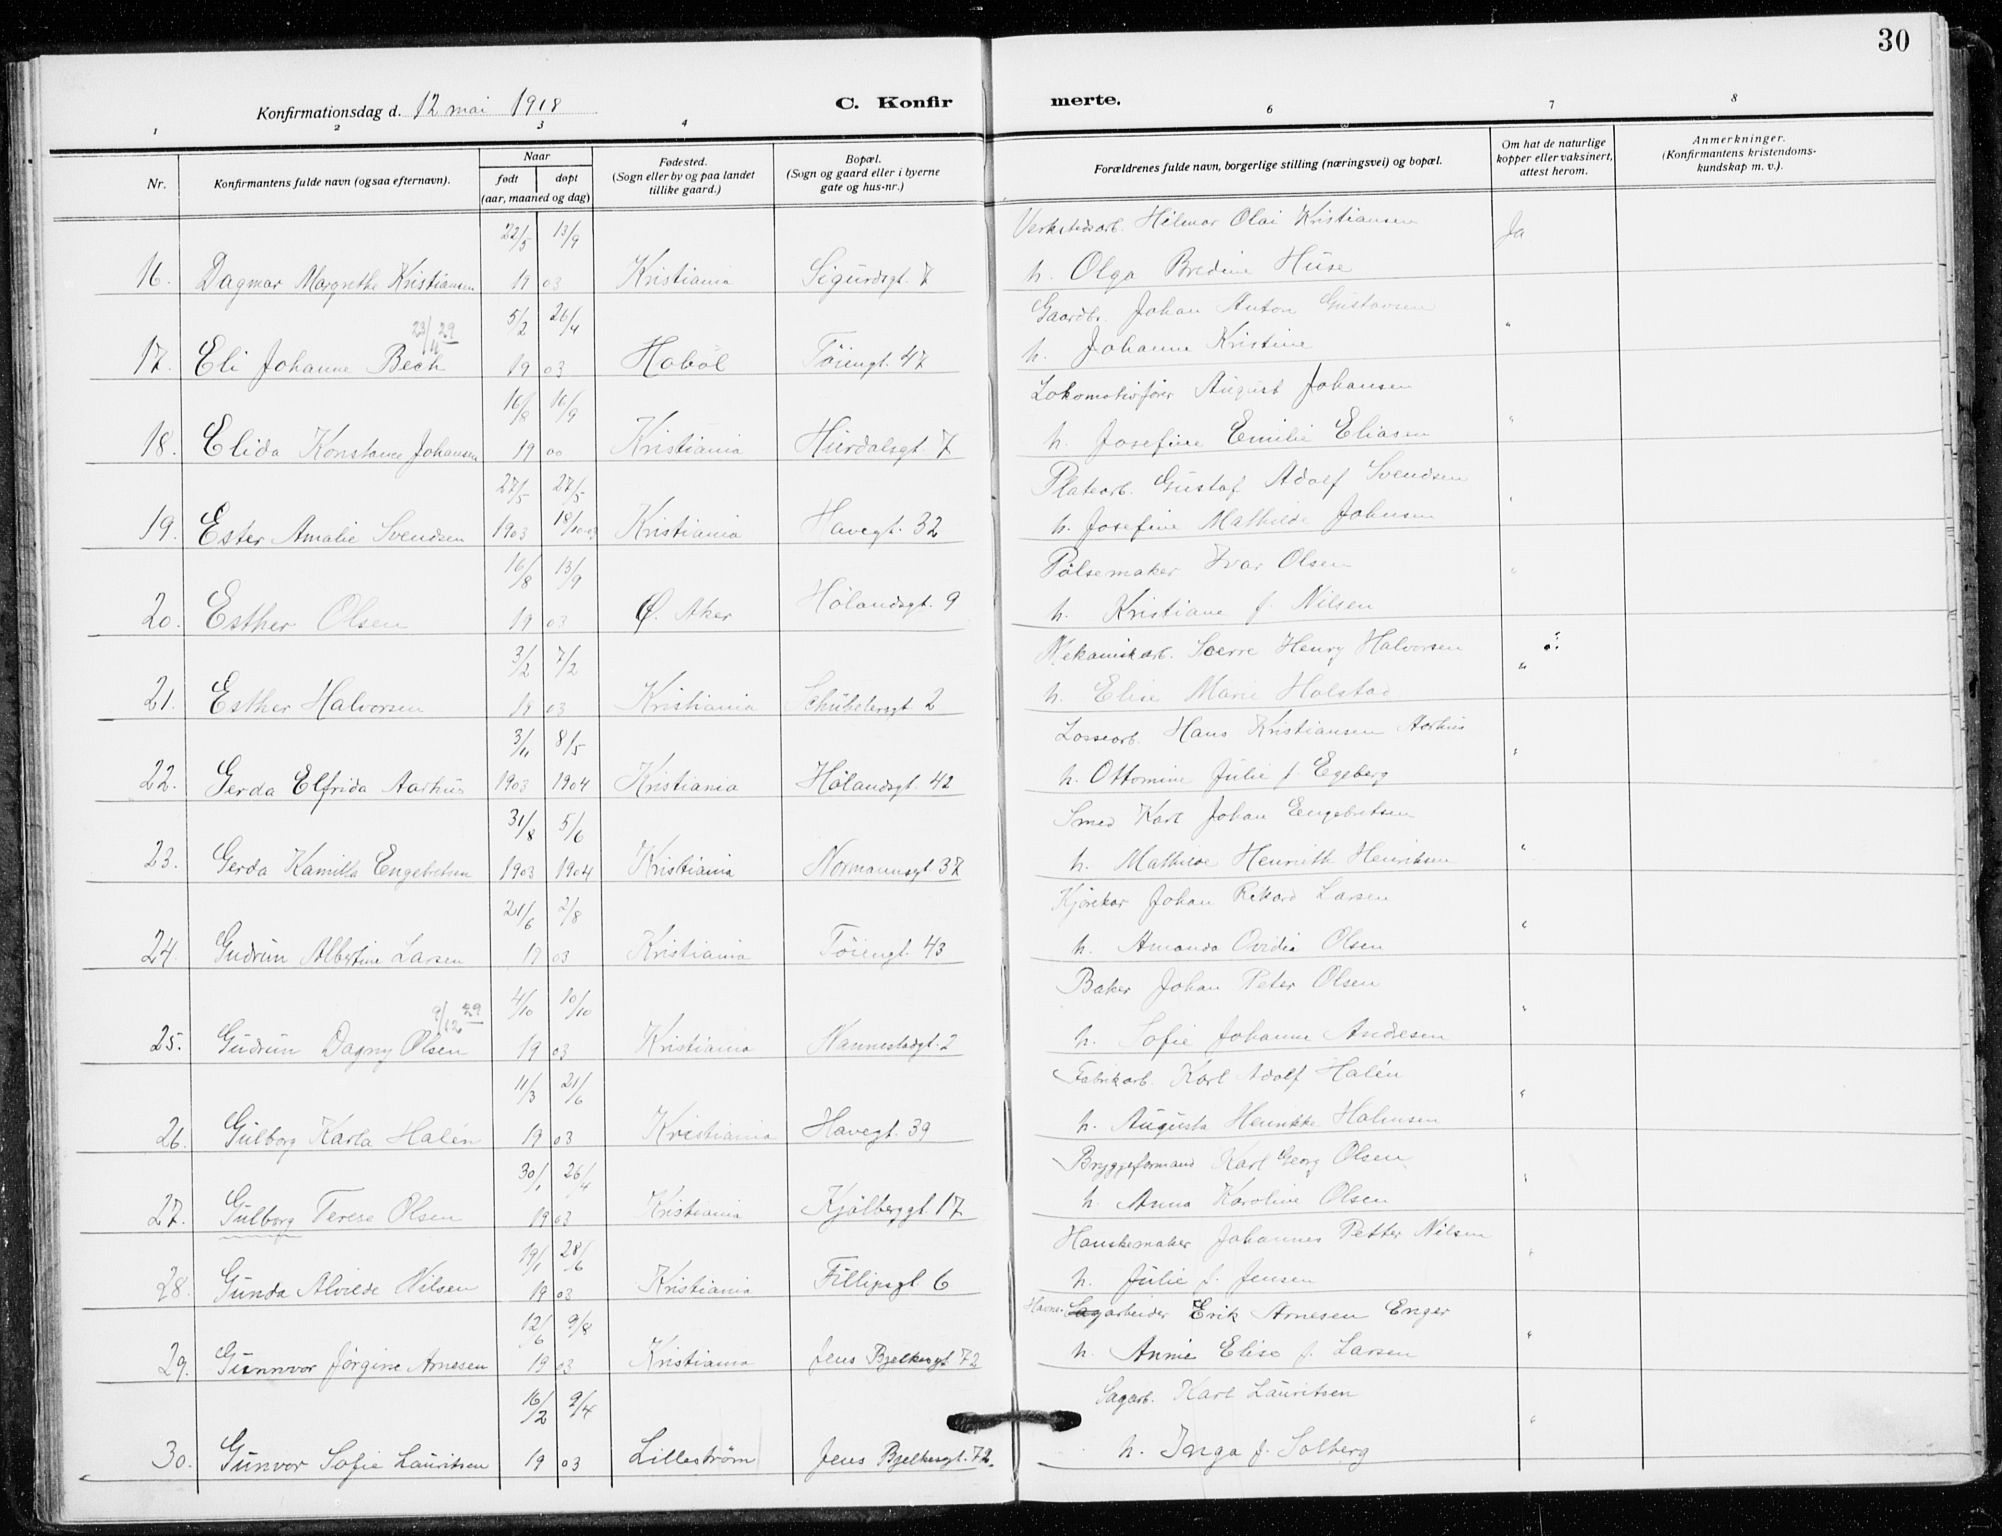 30
Konfirmationsdag d. 12 mai 1918 C. Konfir merte.
1 2 3 4 6 7 8
Nr. Konfirmantens fulde navn (ogsaa efternavn). Naar født døpt (aar, maaned og dag) Fødested. (Sogn eller by og paa landet tillike gaard.) Bopæl. (Sogn og gaard eller i byerne gate og hus-nr.) Forældrenes fulde navn, borgerlige stilling (næringsvei) og bopæl. Om hat de naturlige kopper eller vaksinert, attest herom. Anmerkninger. (Konfirmantens kristendoms- kundskap m. v.).
22/5 13/9 Verkstedsarb. Hilmar Olai Kristiansen Ja
16. Dagmar Margrethe Kristiansen 19 03 Kristiania Sigurdsgt. 7 h. Olga Bredine Huse
5/2 26/4 Gaardbr. Johan Anton Gustavsen "
23/4 29
17. Eli Johanne Bech 19 03 Hobøl Tøiengt. 47 h. Johanne Kristine
16/8 16/9 Lokomotivfører August Johansen "
18. Elida Konstance Johansen 19 00 Kristiania Hurdalsgt. 7 h. Josefine Emilie Eliasen
27/5 27/5 Platearb. Gustaf Adolf Svendsen "
19. Ester Amalie Svendsen 1903 18/10 03 Kristiania Havegt. 32 h. Josefine Mathilde Johnsen
16/8 13/9 Pølsemaker Ivar Olsen "
20. Esther Olsen 19 03 Ø. Aker Hølandsgt. 9 h. Kristiane f. Nilsen
3/2 7/2 Mekaniskarb. Sverre Henry Halvorsen "
21. Esther Halvorsen 19 03 Kristiania Schübelersgt. 2 h. Elise Marie Holstad
3/11 8/5 Lossearb. Hans Kristiansen Aarhus "
22. Gerda Elfrida Aarhus 1903 1904 Kristiania Hølandsgt. 42 h. Ottomine Julie f. Egeberg
31/8 5/6 Smed Karl Johan Engebretsen "
23. Gerda Kamilla Engebretsen 1903 1904 Kristiania Normannsgt 37 h. Mathilde Henriette Henriksen
21/6 2/8 Kjørekar Johan Rikard Larsen "
24. Gudrun Albertine Larsen 19 03 Kristiania Tøiengt. 43 h. Amanda Ovidia Olsen
4/10 10/10 Baker Johan Peter Olsen "
9/12 29
25. Gudrun Dagny Olsen 19 03 Kristiania Hannestadgt. 2 h. Sofie Johanne Andresen
11/3 21/6 Fabrikarb. Karl Adolf Halén "
26. Gulborg Karla Halén 19 03 Kristiania Havegt. 39 h. Augusta Henrikke Halmsen
30/1 26/4 Bryggeformand Karl Georg Olsen "
27. Gulborg Terese Olsen 19 03 Kristiania Kjølberggt. 17 h. Anna Karoline Olsen
19/1 28/6 Hanskemaker Johannes Petter Nilsen "
28. Gunda Alvilde Nilsen 19 03 Kristiania Fillipsgt. 6 h. Julie f. Jensen
12/6 9/8 Havne Sagarbeider Erik Arnesen Enger "
29. Gunnvor Jørgine Arnesen 19 03 Kristiania Jens Bjelkesgt 72 h. Annie Elise f. Larsen
16/2 9/4 Sagarb. Karl Lauritsen "
30. Gunvor Sofie Lauritsen 19 03 Lillestrøm Jens Bjelkesgt. 72. h. Inga f. Solberg